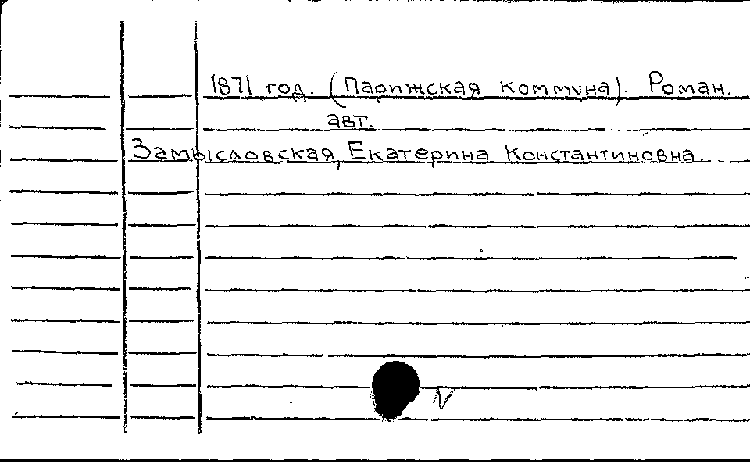 1871 год. (Парижская коммуна). Роман.
авт.
Замысловская, Екатерина Константиновна